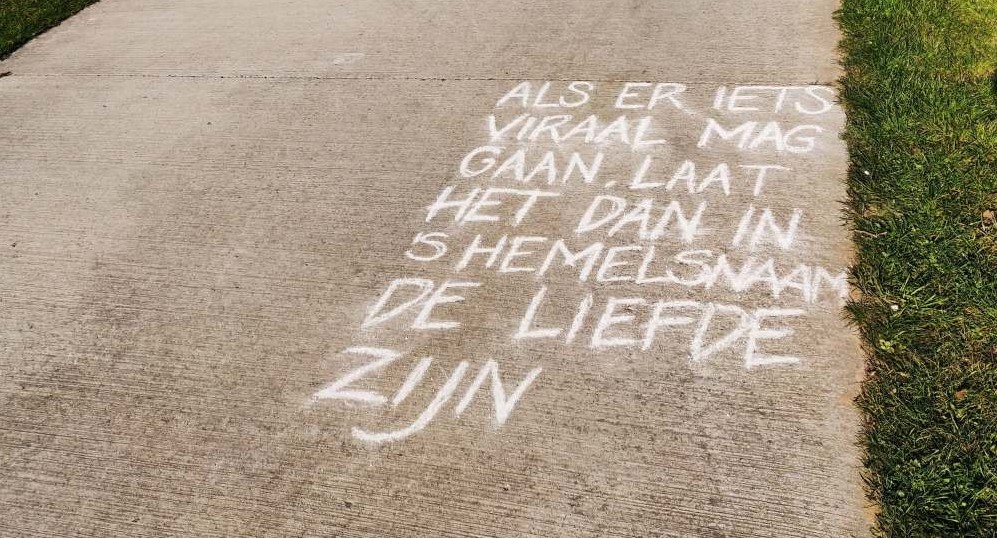 ALS ER IETS
VIRAAL MAG
GAAN, LAAT
HET DAN IN
S HEMELSNAAM
DE LIEFDE
ZIJN